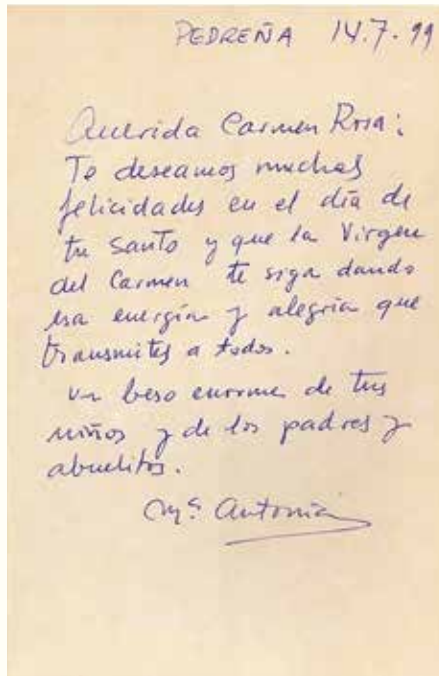 PEDREÑA 14.7.99
Querida Carmen Rosa:
Te deseamos muchas
felicidades en el día de
tu Santo y que la Virgen
del Carmen te siga dando
esa energía y alegría que
transmites a todos.
Un beso enorme de tus
niños y de los padres y
abuelitos.
Mª Antonia